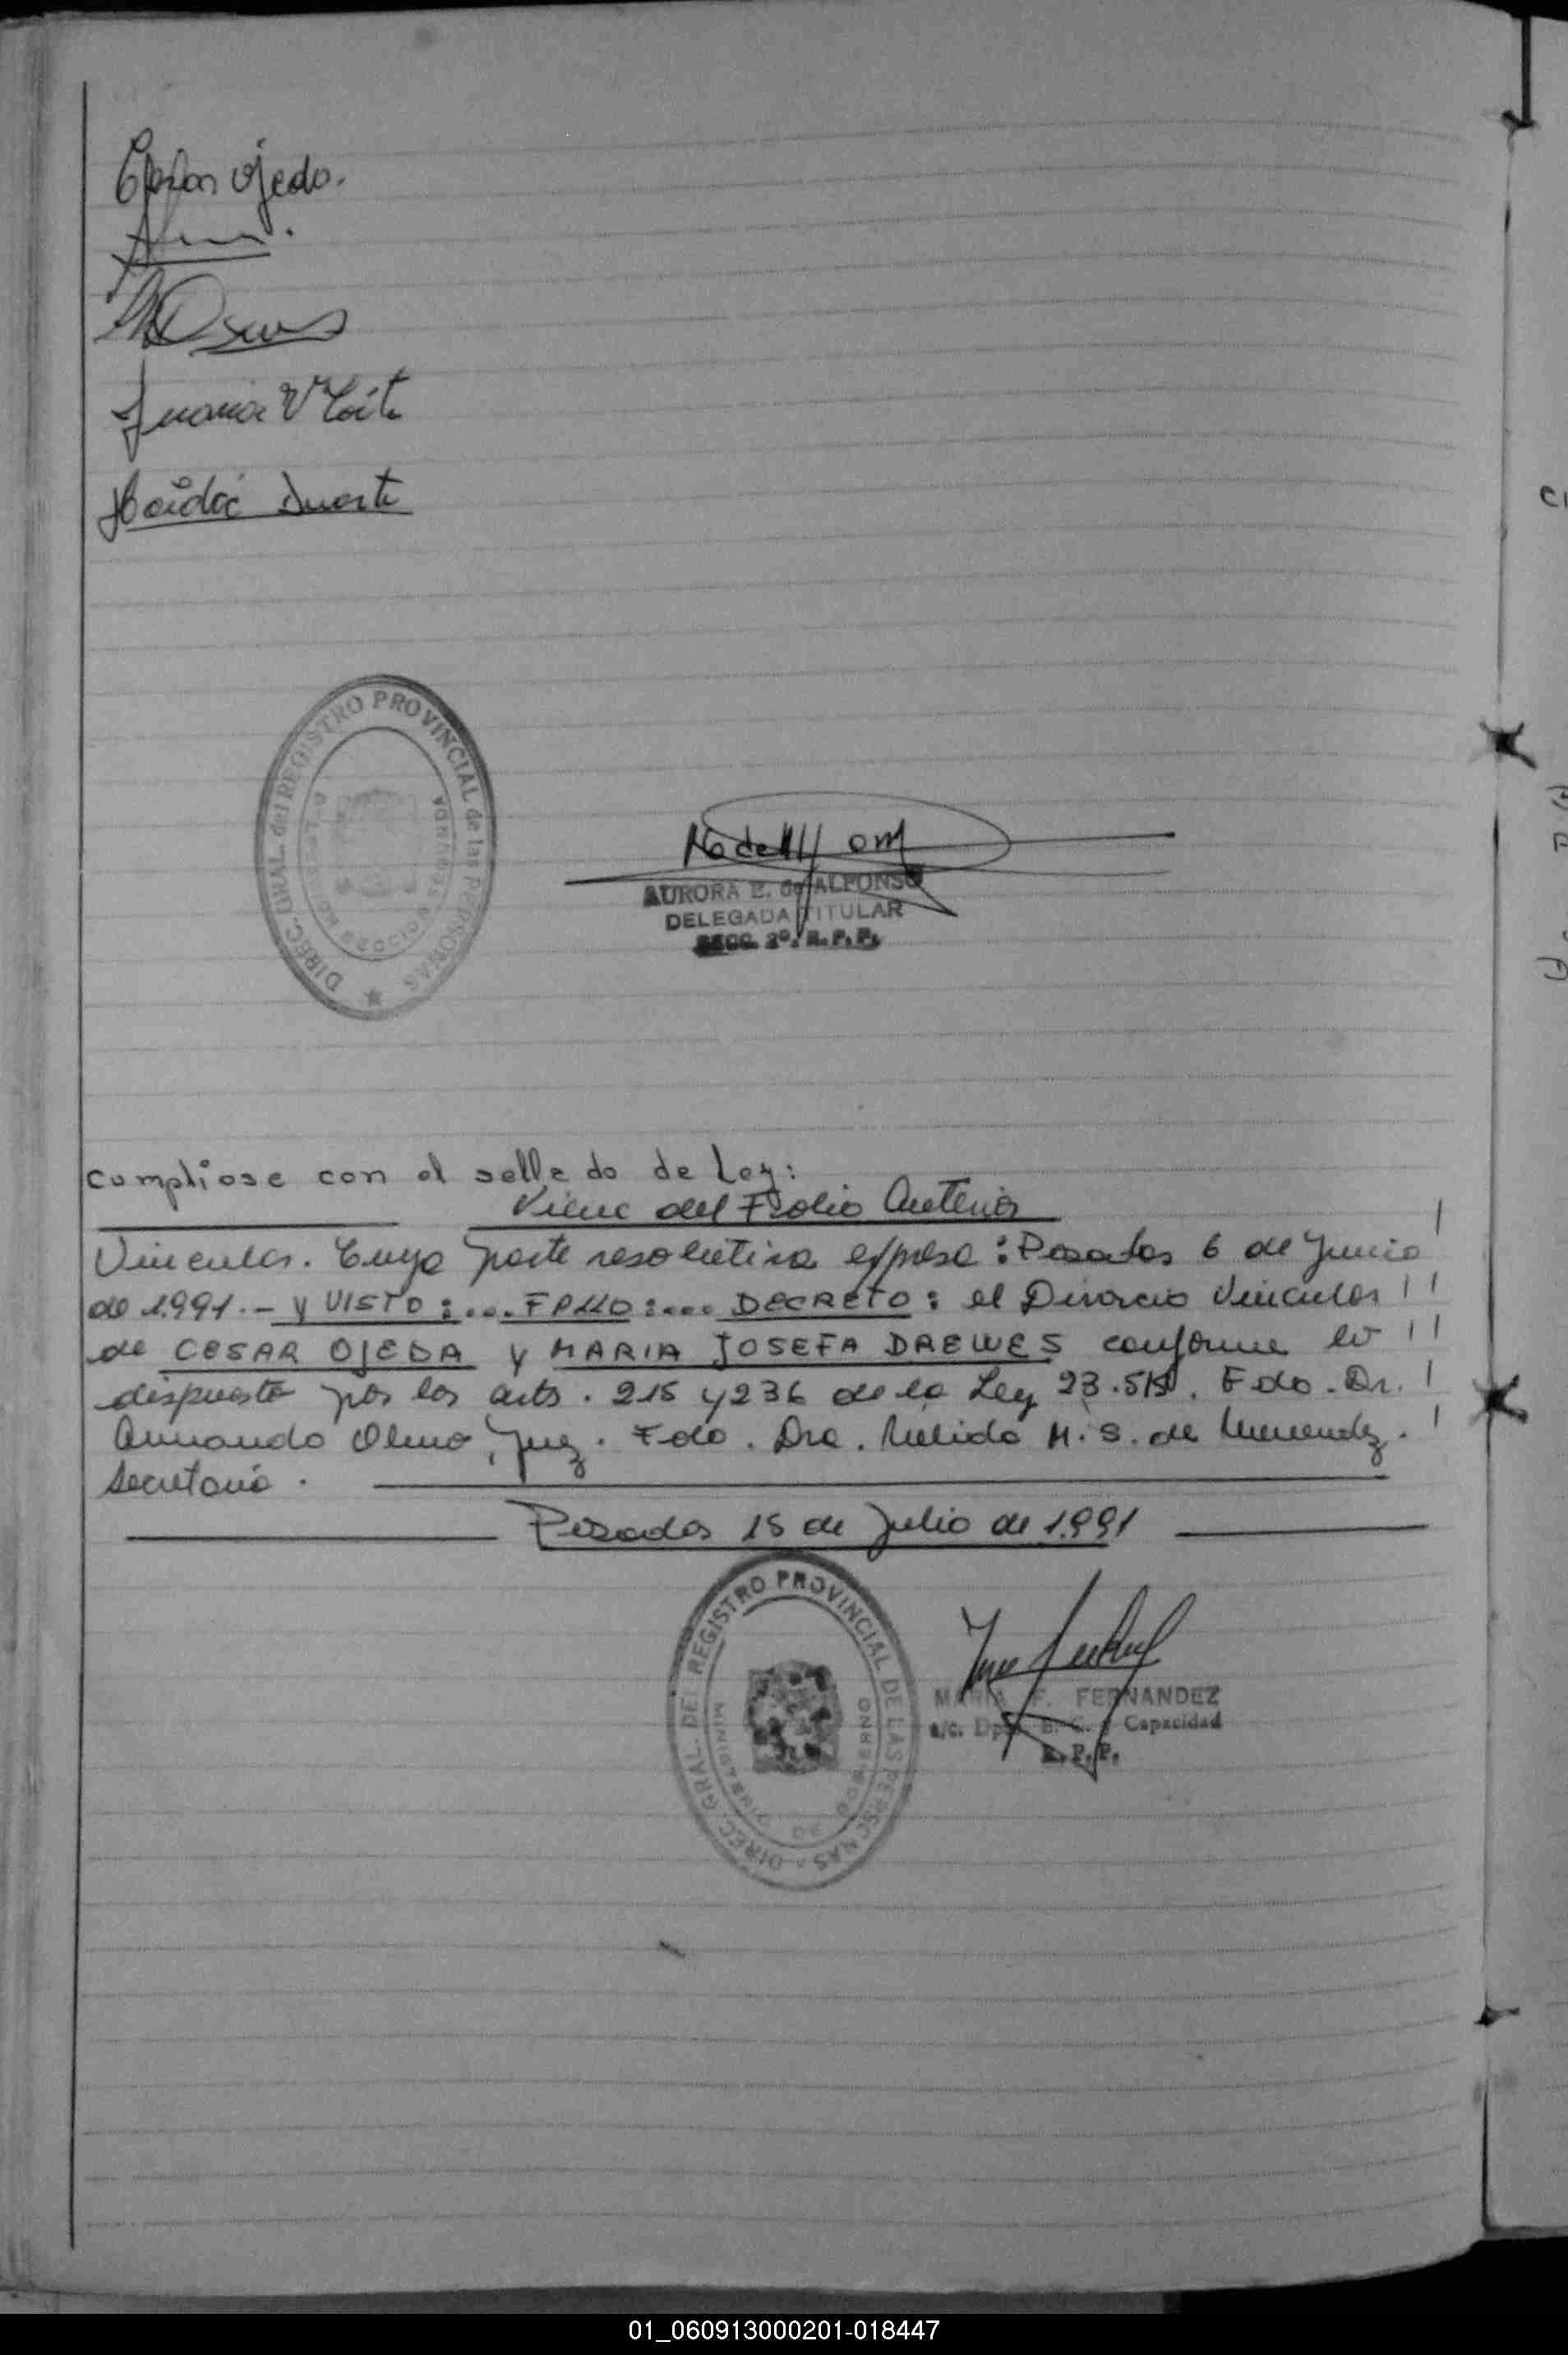 Cesar Ojeda.
Juana V
Haidée Duarte
DIREC. GRAL. del REGISTRO PROVINCIAL de las PERSONAS
SECCION SEGUNDA
AURORA E. de ALFONSO
DELEGADA TITULAR
SECC. 2º. R.P.P.
Cumpliose con el sellado de Ley:
Viene del Folio Anterior
Vincular. Cuya parte resolutiva expresa: Posadas 6 de Junio
de 1.991.- Y VISTO:... FALLO:... DECRETO: el Divorcio Vincular
de CESAR OJEDA y MARIA JOSEFA DREWES conforme lo
dispuesto por los arts. 215 y 236 de la Ley 23.515. Fdo. Dr.
Armando Olmo, Juez. Fdo. Dra. Nelida M. S. de Menendez.
Secretaria.
Posadas 15 de Julio de 1.991
DIREC. GRAL. DEL REGISTRO PROVINCIAL DE LAS PERSONAS
MINISTERIO DE GOBIERNO
MARIA F. FERNANDEZ
a/c. Dpto. E. C. y Capacidad
R.P.P.
01_060913000201-018447